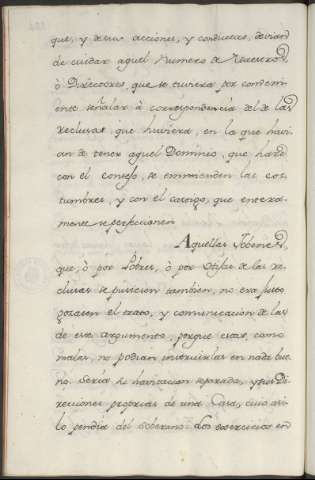 que, y de sus acciones, y conductas, devian
de cuidar aquel Numero de Rectores,
ò Directores, que se tuviera por conveni-
ente señalar à correspondencia del de las
reclusas que huviera, en la que havi-
an de tener aquel Dominio, que hard
con el consejo, se enmienden las cos-
tumbres, y con el castigo, que entera-
mente se perfeccionen
Aquellas Jobenes,
que, ò por Pobres, ò por Hijas de las re-
clusas se pusiesen tambien, no era justo
gozasen el trato, y comunicacion de las
de este argumento, porque estas, como
malas, no podian instruirlas en nada bue-
no. Seria su havitacion separada, y sus Di-
recciones proprias de una Casa, cuio asi-
lo pendia del Soberano. Los exercicios en